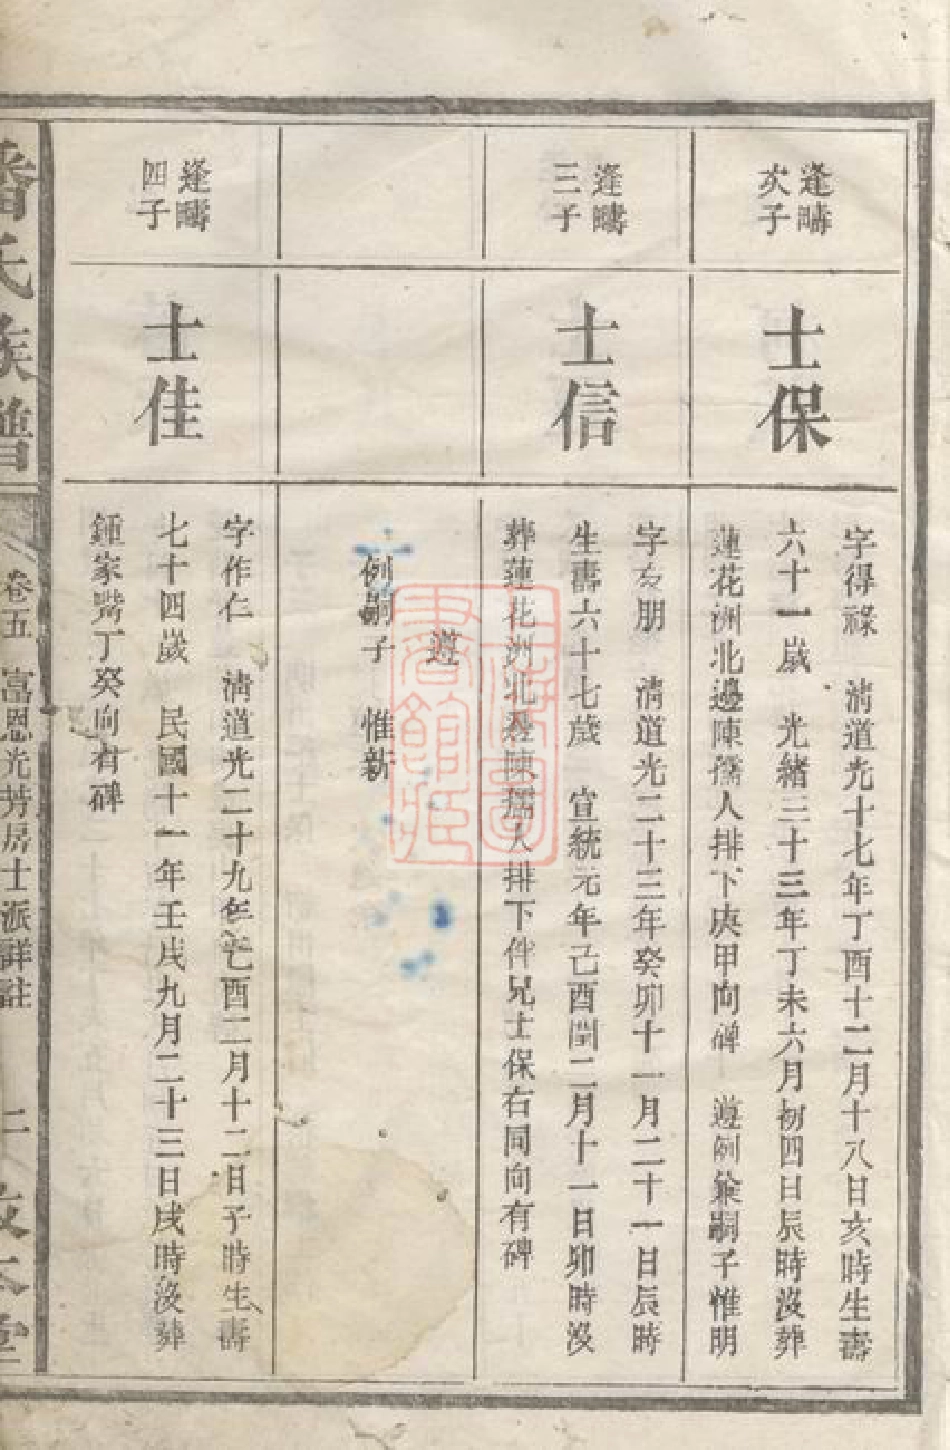 逢疇
次子
士保
字得祿　清道光十七年丁酉十二月十八日亥時生壽
六十一歲　光緒三十三年丁未六月初四日辰時沒葬
蓮花洲北邊陳孺人排下庚甲向碑　遵例兼嗣子惟明
逢疇
三子
士信
字友朋　清道光二十三年癸卯十一月二十一日辰時
生壽六十七歲　宣統元年己酉閏二月十一日卯時沒
葬蓮花洲北邊陳孺人排下伴兄士保右同向有碑
遵
例嗣子　惟新
逢疇
四子
士佳
字作仁　清道光二十九年己酉二月十二日子時生壽
七十四歲　民國十一年壬戌九月二十三日戌時沒葬
鍾家嘴丁癸向有碑
潘氏族譜
卷五　富恩光芳房士派詳註